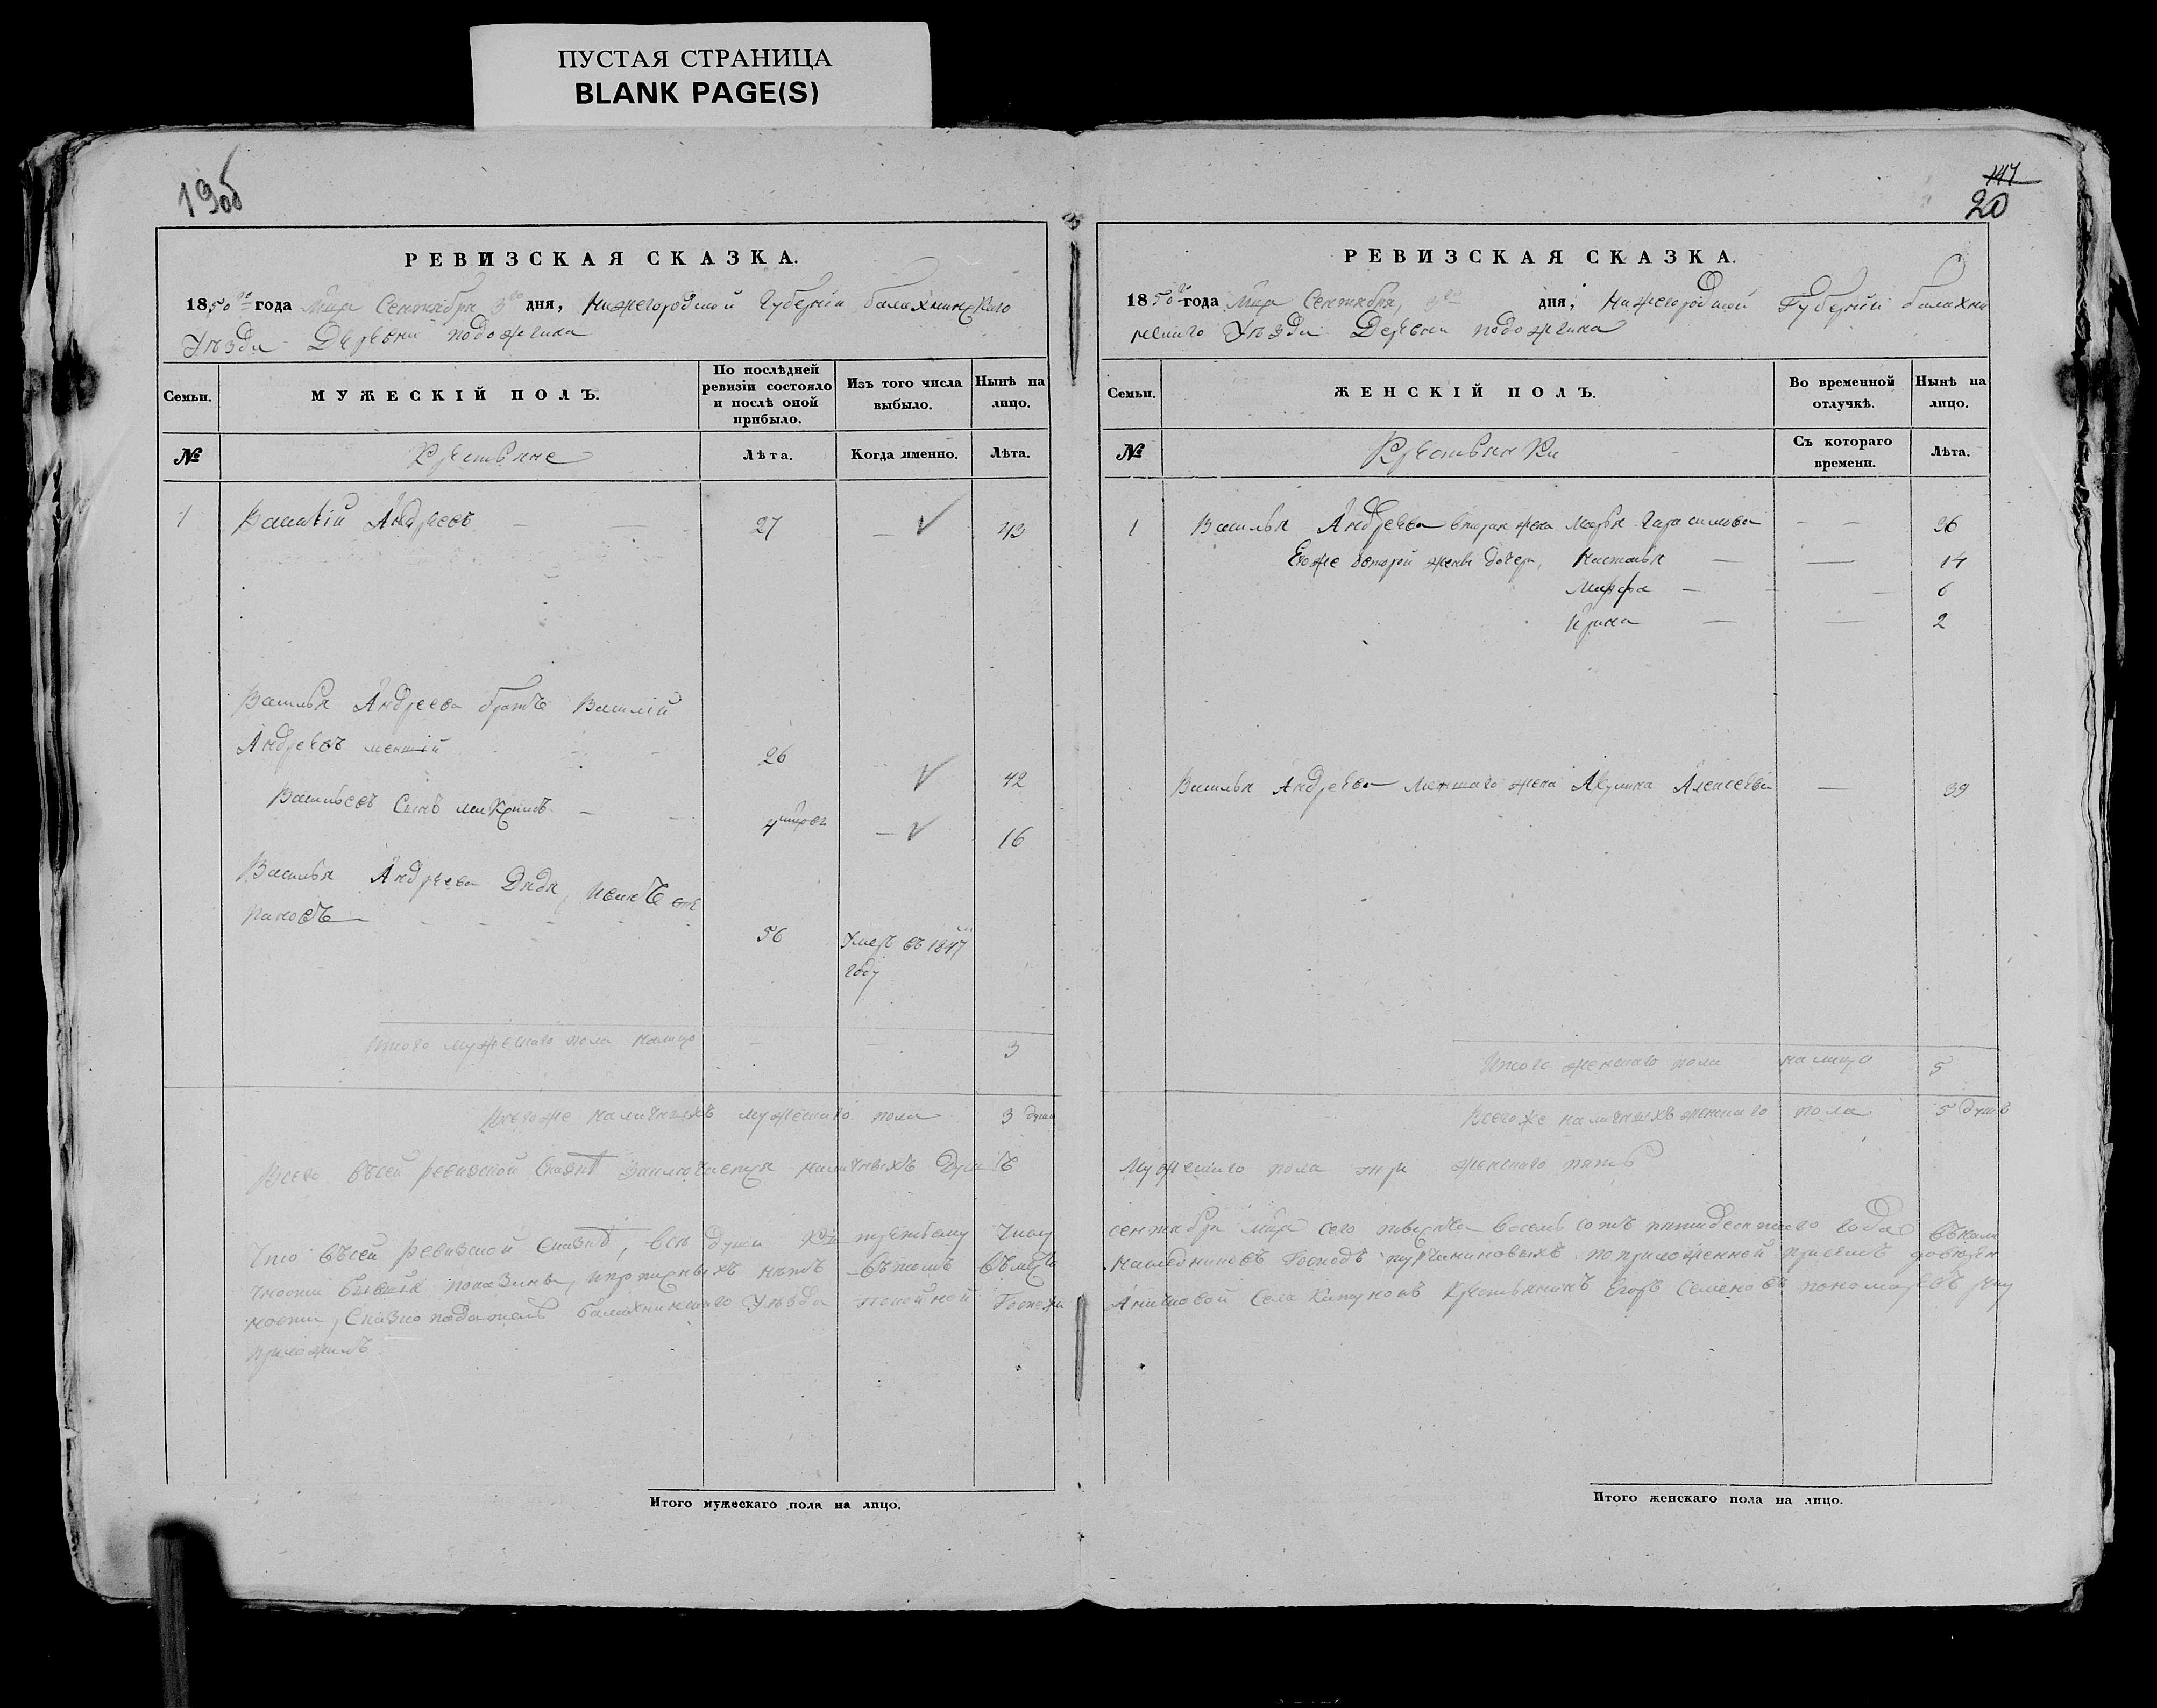 ПУСТАЯ СТРАНИЦА
BLANK PAGE(S)
19об
РЕВИЗСКАЯ СКАЗКА.
1850го года Мца Сентября 3го дня, Нижегородской Губерніи балахнинскаго
Уѣзда Деревни подожгина
Семьи.
МУЖЕСКІЙ ПОЛЪ.
По послѣдней ревизіи состояло и послѣ оной прибыло.
Изъ того числа выбыло.
Нынѣ на лицо.
№
Крестьяне
Лѣта.
Когда именно.
Лѣта.
1 Василій Андреевъ — — 27 — ✓ 43
Василья Андреева братъ Василій
Андреевъ меншій 26 ✓ 42
Васильевъ Сынъ — — ✓ 16
Василья Андреева Дядя, Иванъ
56 Умеръ въ 1847
году
Итого мужескаго пола налицо — — 3
Всего же наличныхъ мужескаго пола 3 души
Всего въ сей ревизской Сказкѣ Заключается наличныхъ Душъ
Что въ сей ревизской Сказкѣ, всѣ души
показаны, и прописныхъ нѣтъ въ томъ
Сказко податель балахнинскаго Уѣзда Госпожи
приложилъ
Итого мужескаго пола на лицо.
147
20
РЕВИЗСКАЯ СКАЗКА.
1850го года Мца Сентября, 3го дня, Нижегородской Губерніи балахни
нскаго Уѣзда Деревни подожгина
Семьи.
ЖЕНСКІЙ ПОЛЪ.
Во временной отлучкѣ.
Нынѣ на лицо.
№
Крестьянки
Съ котораго времени.
Лѣта.
1 Василья Андреева вторая жена Марья Гарасимова — — 26
Ево же второй жены дочери, Настасья — — 14
Марфа — — — 6
Ирина — — 2
Василья Андреева Меншаго жена Акулина Алексеева — 39
Итого женскаго пола налицо 5
Всего же наличныхъ женскаго пола 5 душъ
Мужескаго пола три женскаго пять
сентября мца сего тысяча восемь сотъ пятидесятаго года
Господъ по приложенной
Села Катунокъ Крестьянинъ Егоръ Семеновъ пономаревъ руку
Итого женскаго пола на лицо.